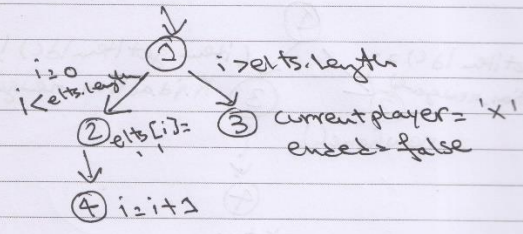 1
i=0
i<elts.length
i>elts.length
2 elts[i]=
' '
3 currentplayer='X'
ended=false
4 i=i+1